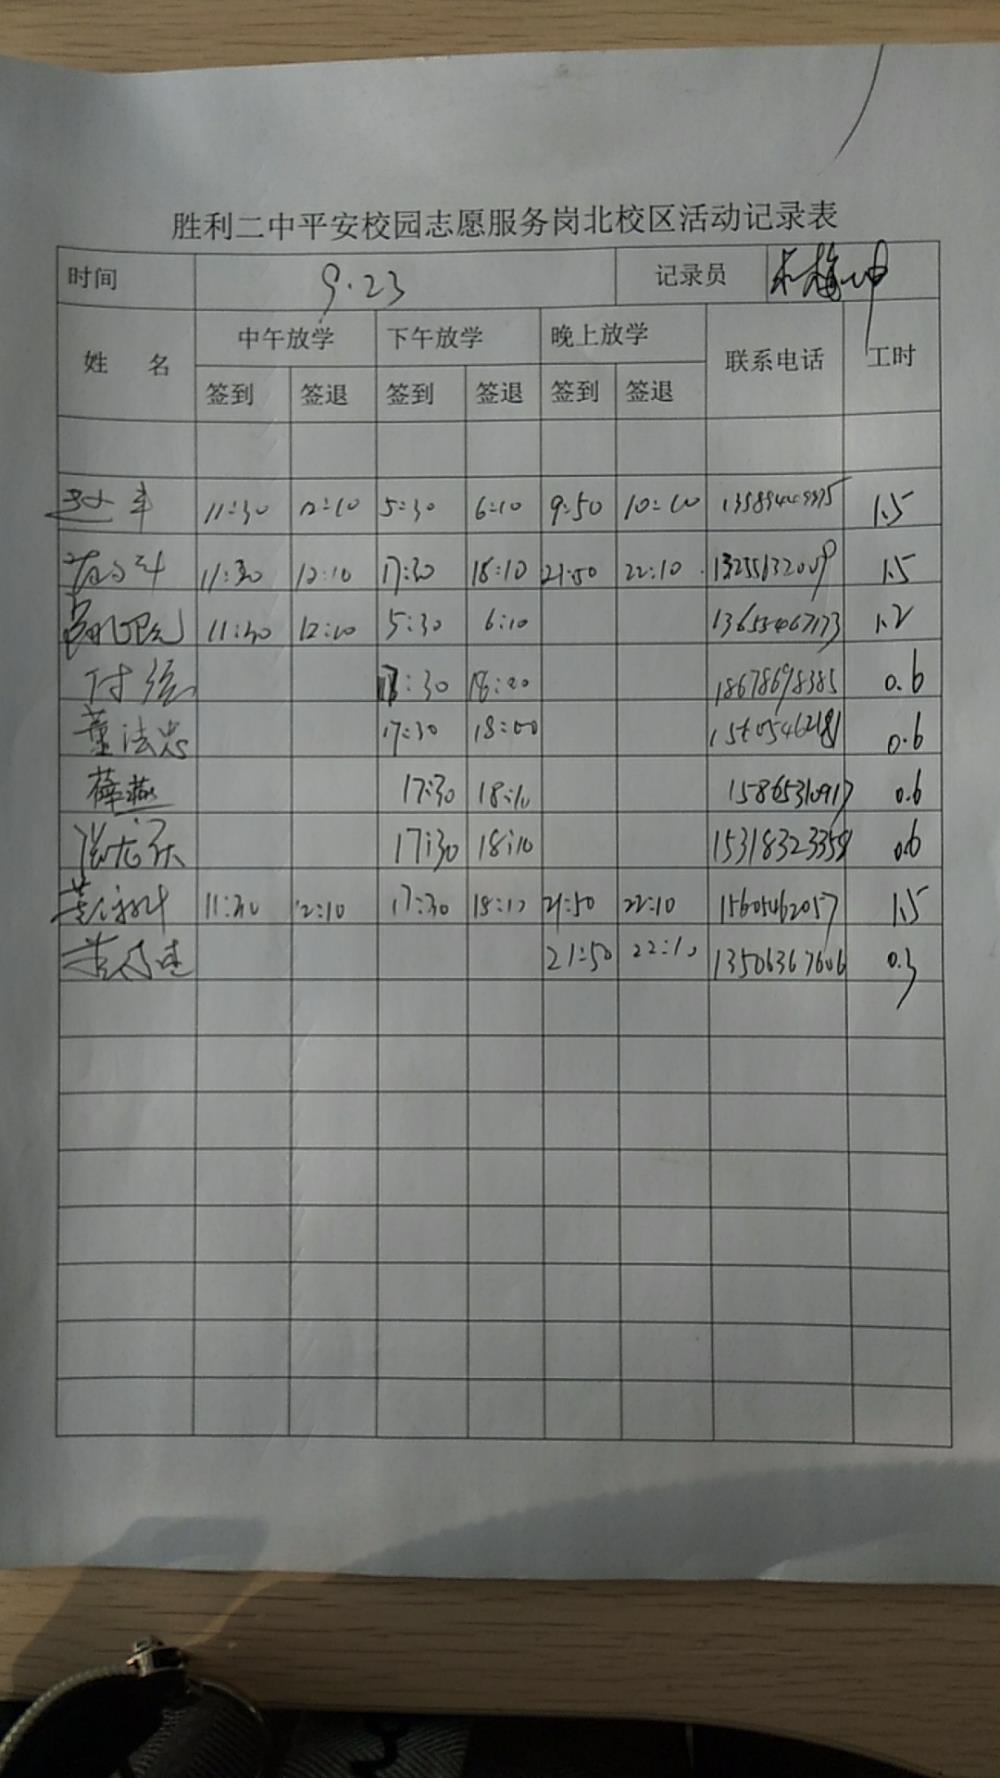 胜利二中平安校园志愿服务岗北校区活动记录表
时间 9.23 记录员
姓 名 中午放学 下午放学 晚上放学 联系电话 工时
签到 签退 签到 签退 签到 签退
11:30 12:10 5:30 6:10 9:50 10:10 1.5
11:30 12:10 17:30 18:10 21:50 22:10 1.5
11:30 12:10 5:30 6:10 13655467173 1.2
付强 17:30 18:00 18678698385 0.6
董法忠 17:30 18:00 0.6
薛燕 17:30 18:10 15865310917 0.6
17:30 18:10 15318323358 0.6
11:30 12:10 17:30 18:10 21:50 22:10 15605462057 1.5
21:50 22:10 13506367606 0.3